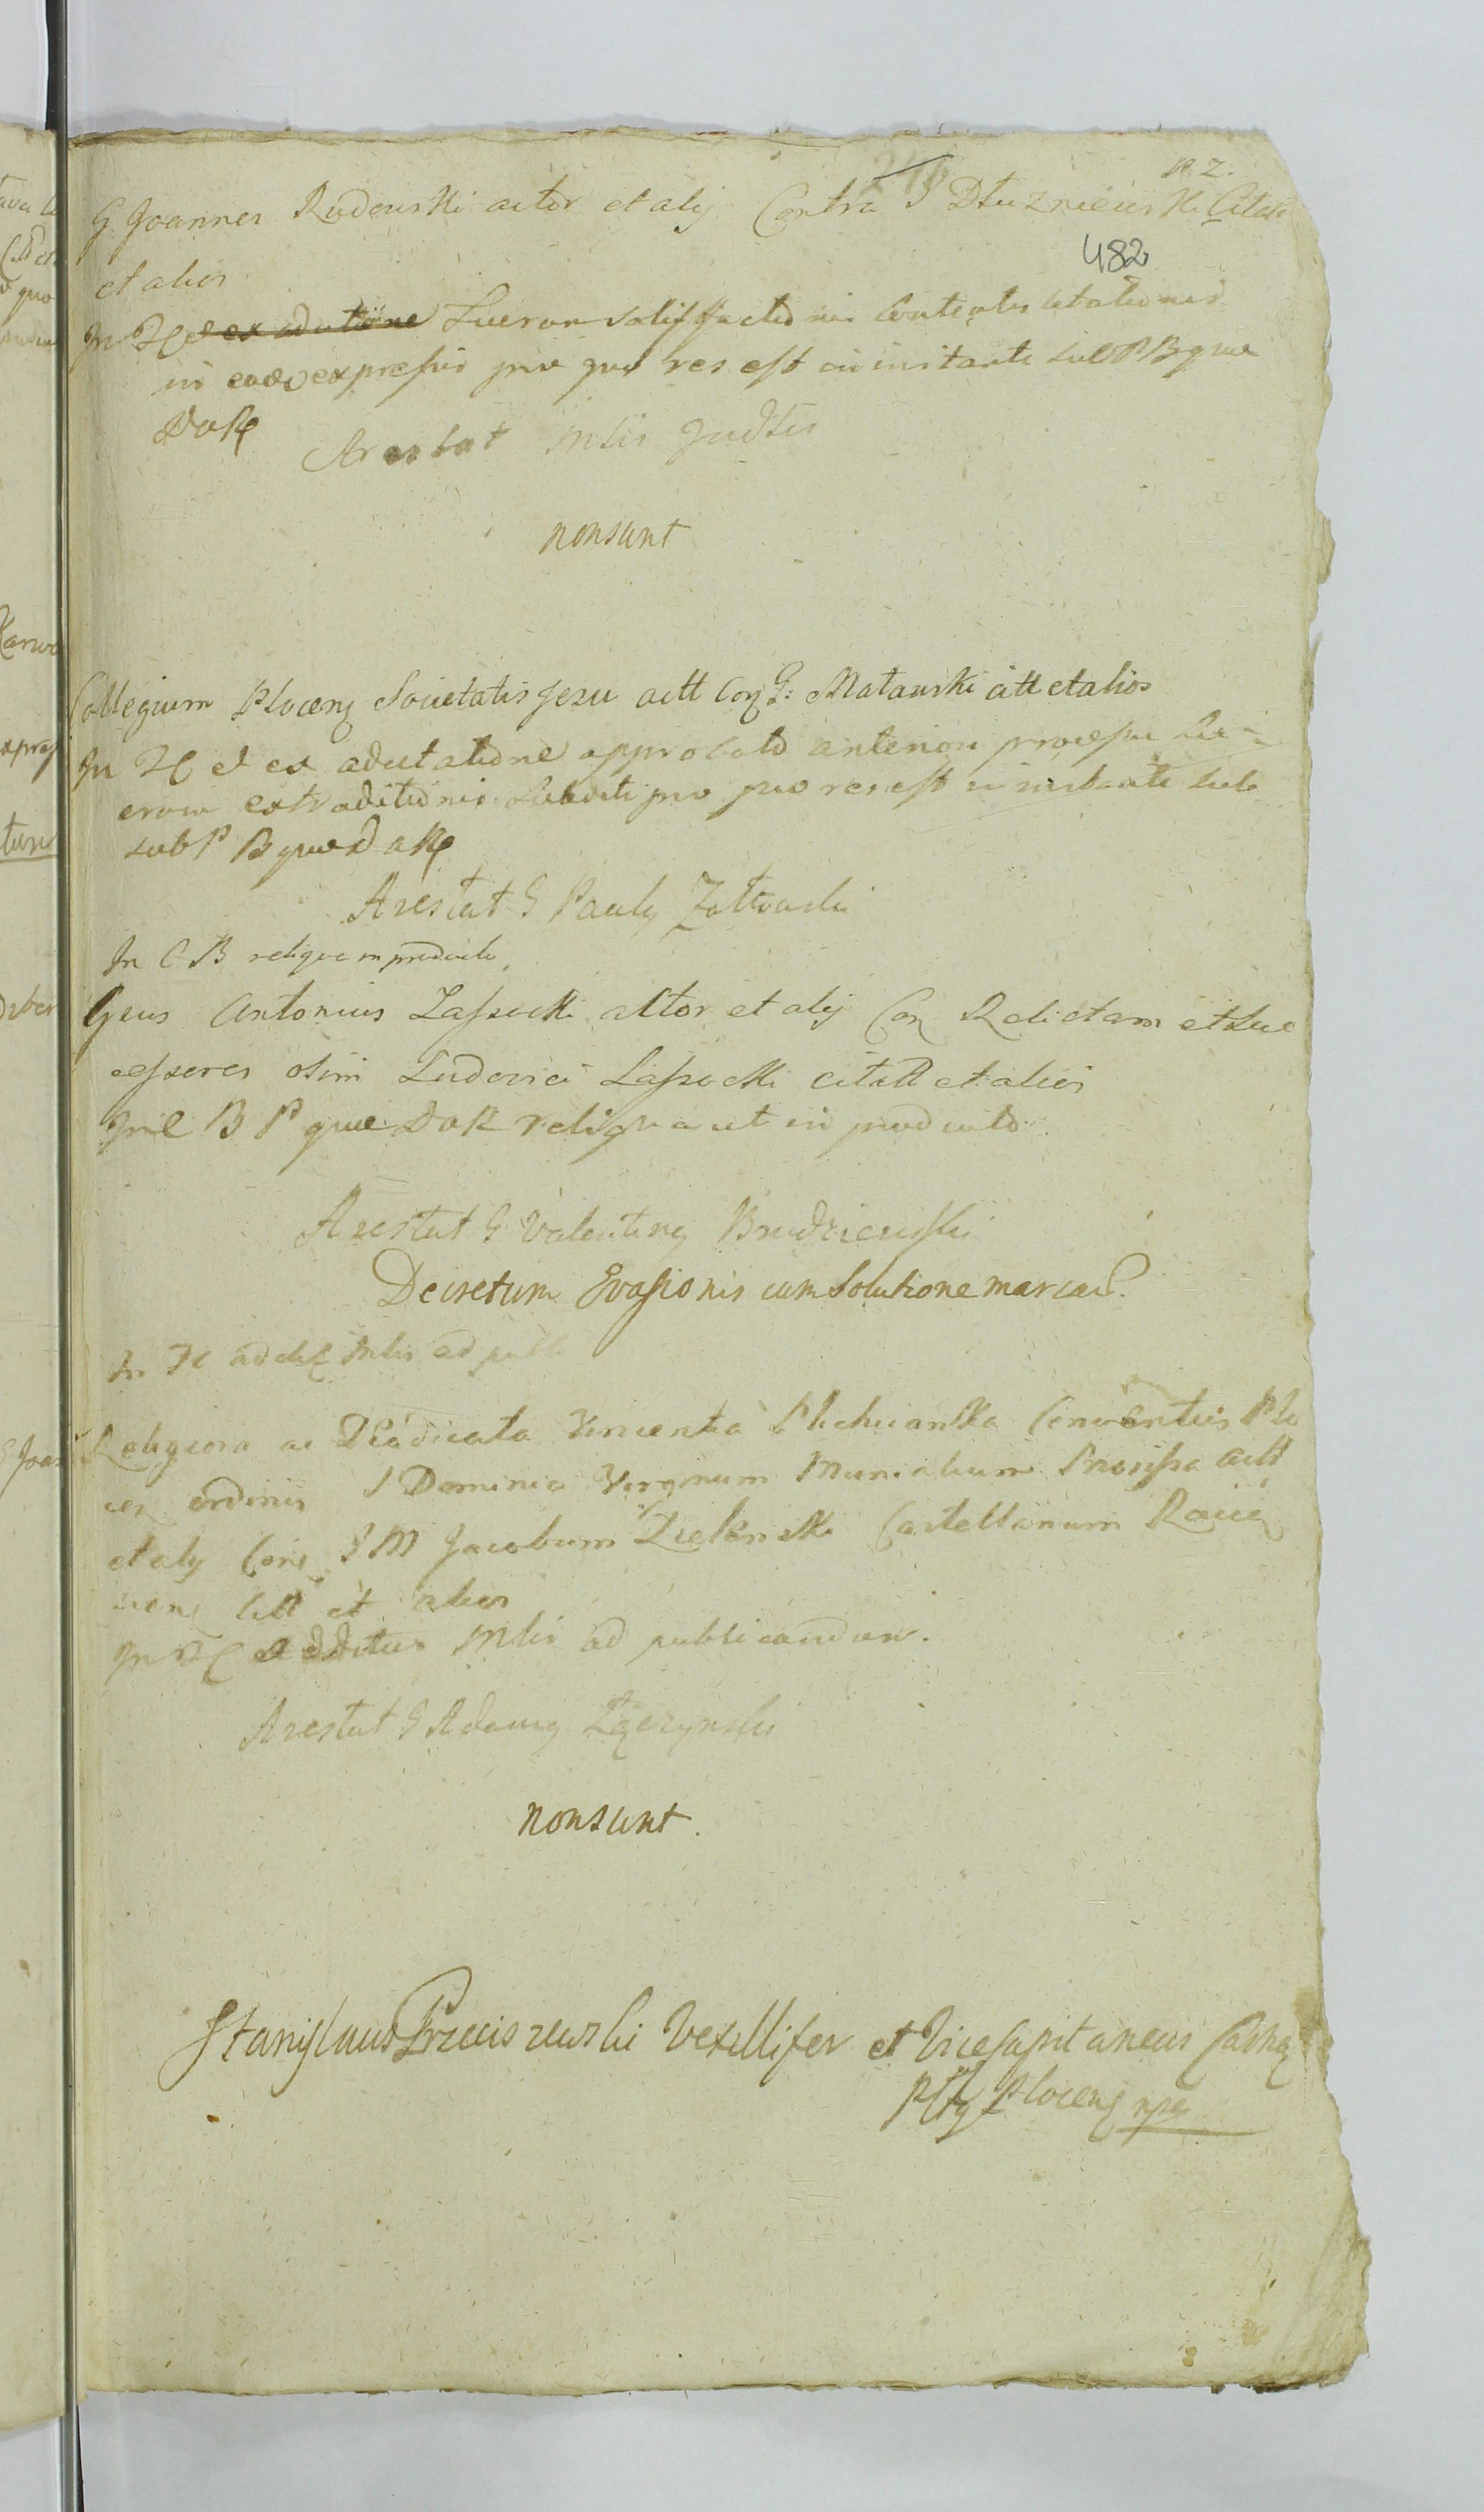 N 2.
G Joannes Rudowski actor et alij Contra G Dłuzniewski Citatt
482
et alios
In H et ex adutatione Lucrorum satisfactionis Contentis Citationis
in eadem expressis pro quo res est in instanti sub P B que
DaR
Arestat Mlis Judtis
nonsunt
Collegium Plocens Societatis Jesu actt Con G: Mataurski citt et alios
In H et ex aductatione approbato anteriori processu Lu-
crorum extraditionis Subditi pro quo res est in instanti sub
sub P B que DaR
Arestat G Paulg Zottowski
In C B reliqva in producto
Gsus Antonius Lassocki aktor et alij Con Relictam et Suc
cessores olim Ludovici Lassocki citatt et alios
In C B P que DaR reliqva ut in producto
Arestat G Valenting Brudziewski
Decretum Evasionis cum Solutione marcar.
In H Mlis ad publ
Religiosa ac Deodicata Vincentia Plichcianska Conventus Plo
cen ordinis S Dominici Virginum Monialium Priorissa actt
et alij Con J M Jacobum Zielenski Castellanum Racią
zens citt et alios
In H additus Mlis ad publicandum.
Arestat G Adamg
nonsunt.
Stanislaus Przeciszewski Vexillifer et ViceCapitaneus Castren
Plocens mp